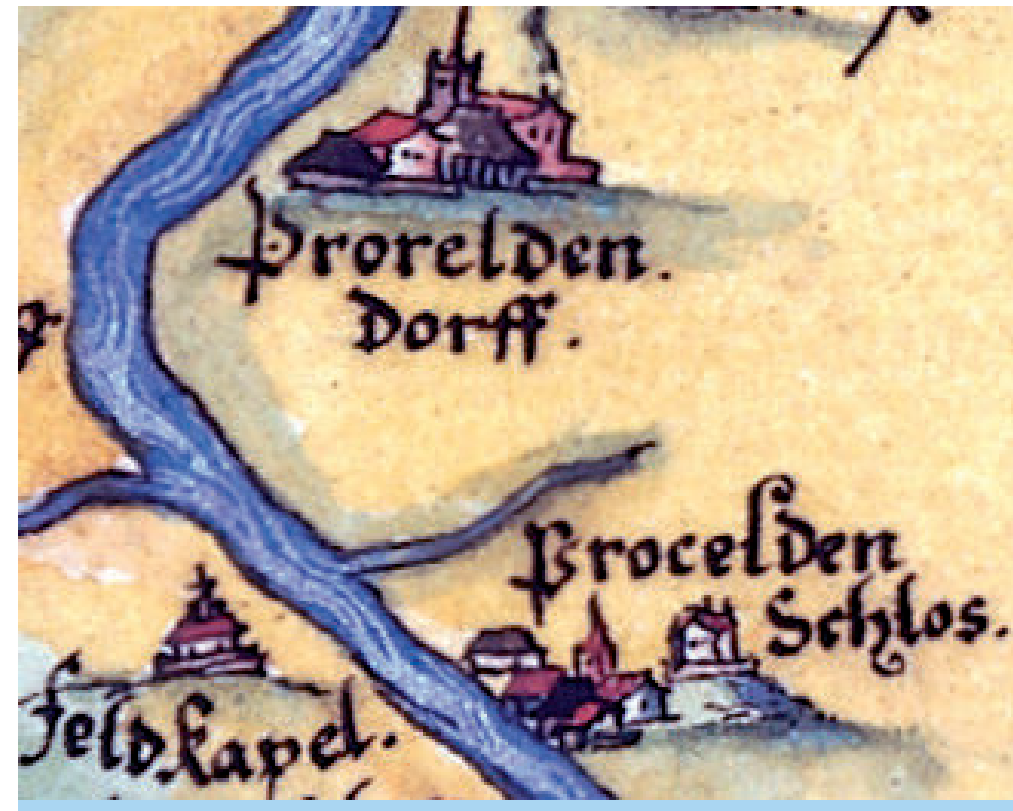 Prorelden.
Dorff.
Procelden
Schlos.
feldkapel.